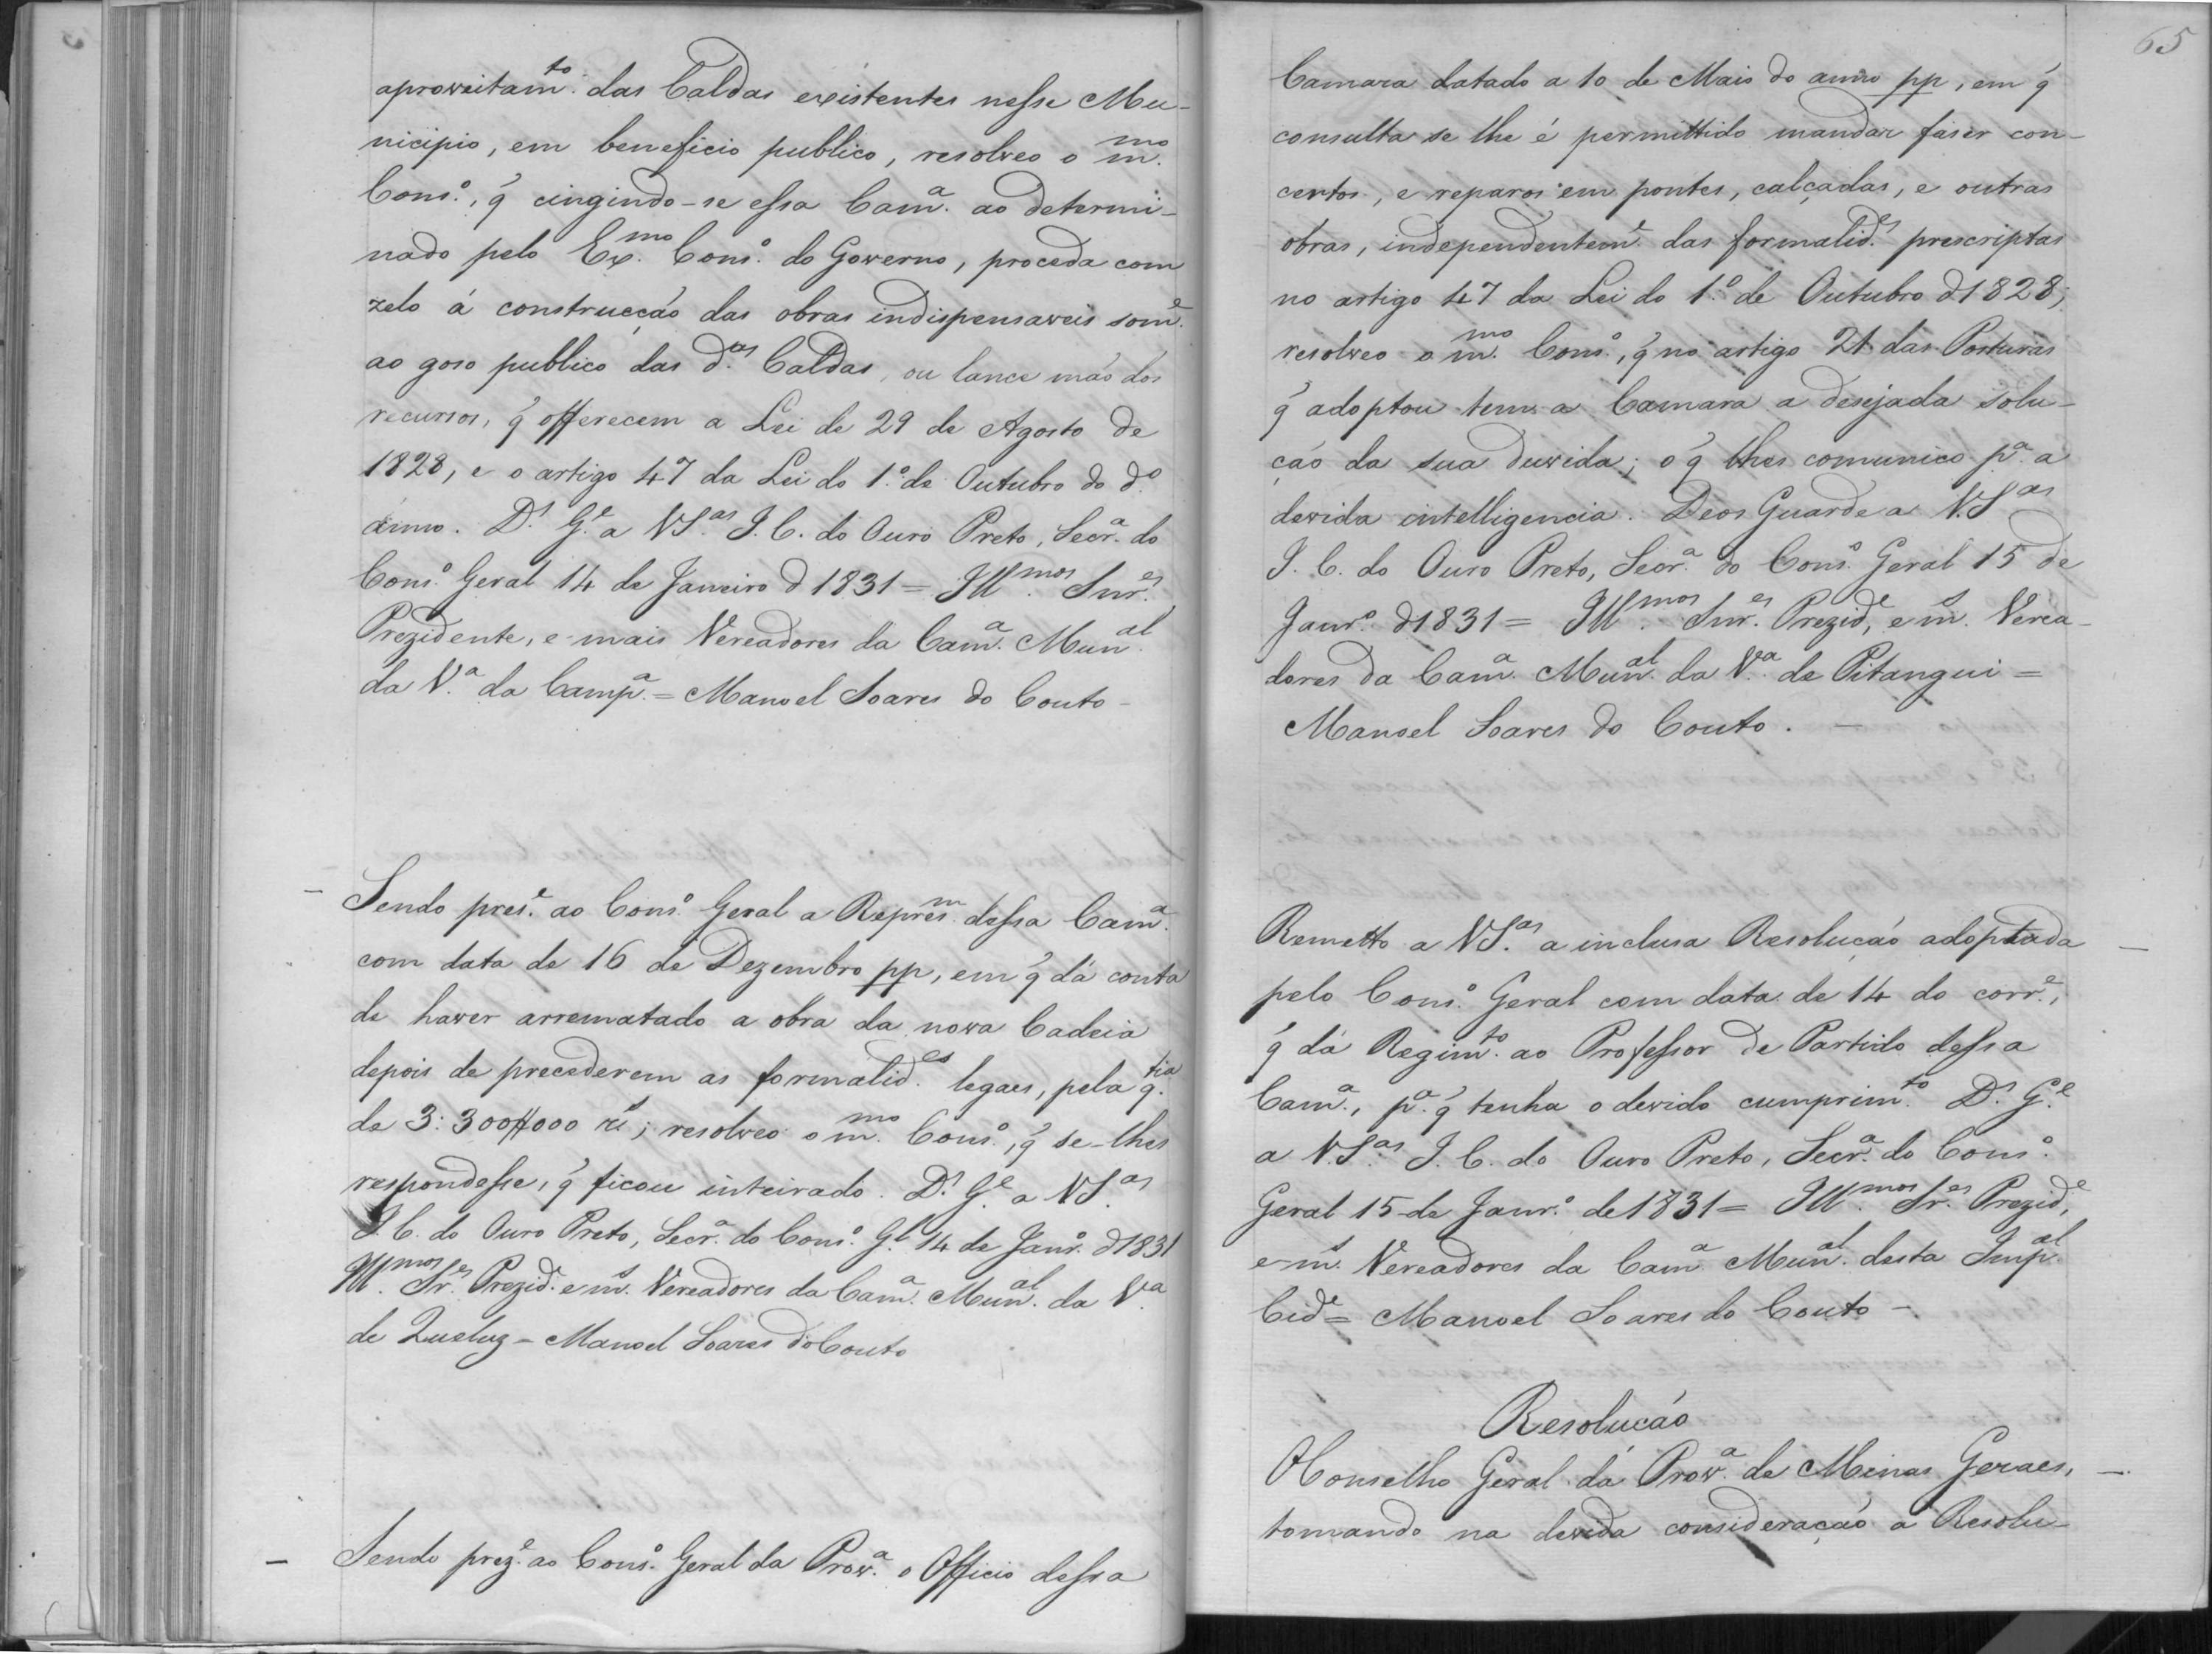 aproveitam.to das Caldas existentes nesse Mu-
nicipio, em beneficio publico, resolveo o m.mo
Cons.o, q̃ cingindo-se essa Cam.a ao determi-
nado pelo Ex.mo Cons.o do Governo, proceda com
zelo á construcção das obras indispensaveis som.e
ao goso publico das d.as Caldas, ou lance mão dos
recursos, q̃ offerecem a Lei de 29 de Agosto de
1828, e o artigo 47 da Lei do 1.o de Outubro do d.o
anno. D.s G.e a VS.as I. C. do Ouro Preto, Secr.a do
Cons.o Geral 14 de Janeiro d 1831 = Ill.mos Snr.es
Prezidente, e mais Vereadores da Cam.a Mun.al
da V.a da Camp.a = Manoel Soares do Couto -
- Sendo pres.e ao Cons.o Geral a Repres.m dessa Cam.a
com data de 16 de Dezembro pp, em q̃ dá conta
de haver arrematado a obra da nova Cadeia
depois de precederem as formalid.es legaes, pela q.tia
de 3:300$000 rs; resolveo o m.mo Cons.o, q̃ se-lhes
respondesse, q̃ ficou inteirado. D.s G.e a VS.as
I. C. do Ouro Preto, Secr.a do Cons.o G.l 14 de Janr.o d 1831
Ill.mos Sr.es Prezid.e e m.s Vereadores da Cam.a Mun.al da V.a
de Queluz - Manoel Soares do Couto
- Sendo prez.e ao Cons.o Geral da Prov.a o Officio dessa
65
Camara datado a 10 de Maio do anno pp, em q̃
consulta se lhe é permittido mandar faser con-
certos, e reparos em pontes, calçadas, e outras
obras, independentem.e das formalid.es prescriptas
no artigo 47 da Lei do 1.o de Outubro d 1828;
resolveo o m.mo Cons.o, q̃ no artigo 21 das Posturas
q̃ adoptou tem a Camara a desejada solu-
ção da sua duvida; o q̃ lhes comunico p.a a
devida intelligencia. Deos Guarde a V.S.as
I. C. do Ouro Preto, Secr.a do Cons.o Geral 15 de
Janr.o d 1831 = Ill.mos Snr.es Prezid.e, e m.s Verea-
dores da Cam.a Mun.al da V.a de Pitangui =
Manoel Soares do Couto. -
Remetto a VS.as a inclusa Resolução adoptada -
pelo Cons.o Geral com data de 14 do corr.e,
q̃ dá Regim.to ao Professor de Partido dessa
Cam.a, p.a q̃ tenha o devido cumprim.to D.s G.e
a V.S.as I. C. do Ouro Preto, Secr.a do Cons.o
Geral 15 de Janr.o de 1831 = Ill.mos Sr.es Prezid.e,
e m.s Vereadores da Cam.a Mun.al desta Imp.al
Cid.e = Manoel Soares do Couto -
Resolução
O Conselho Geral da Prov.a de Minas Geraes, -
tomando na devida consideração a Resolu-